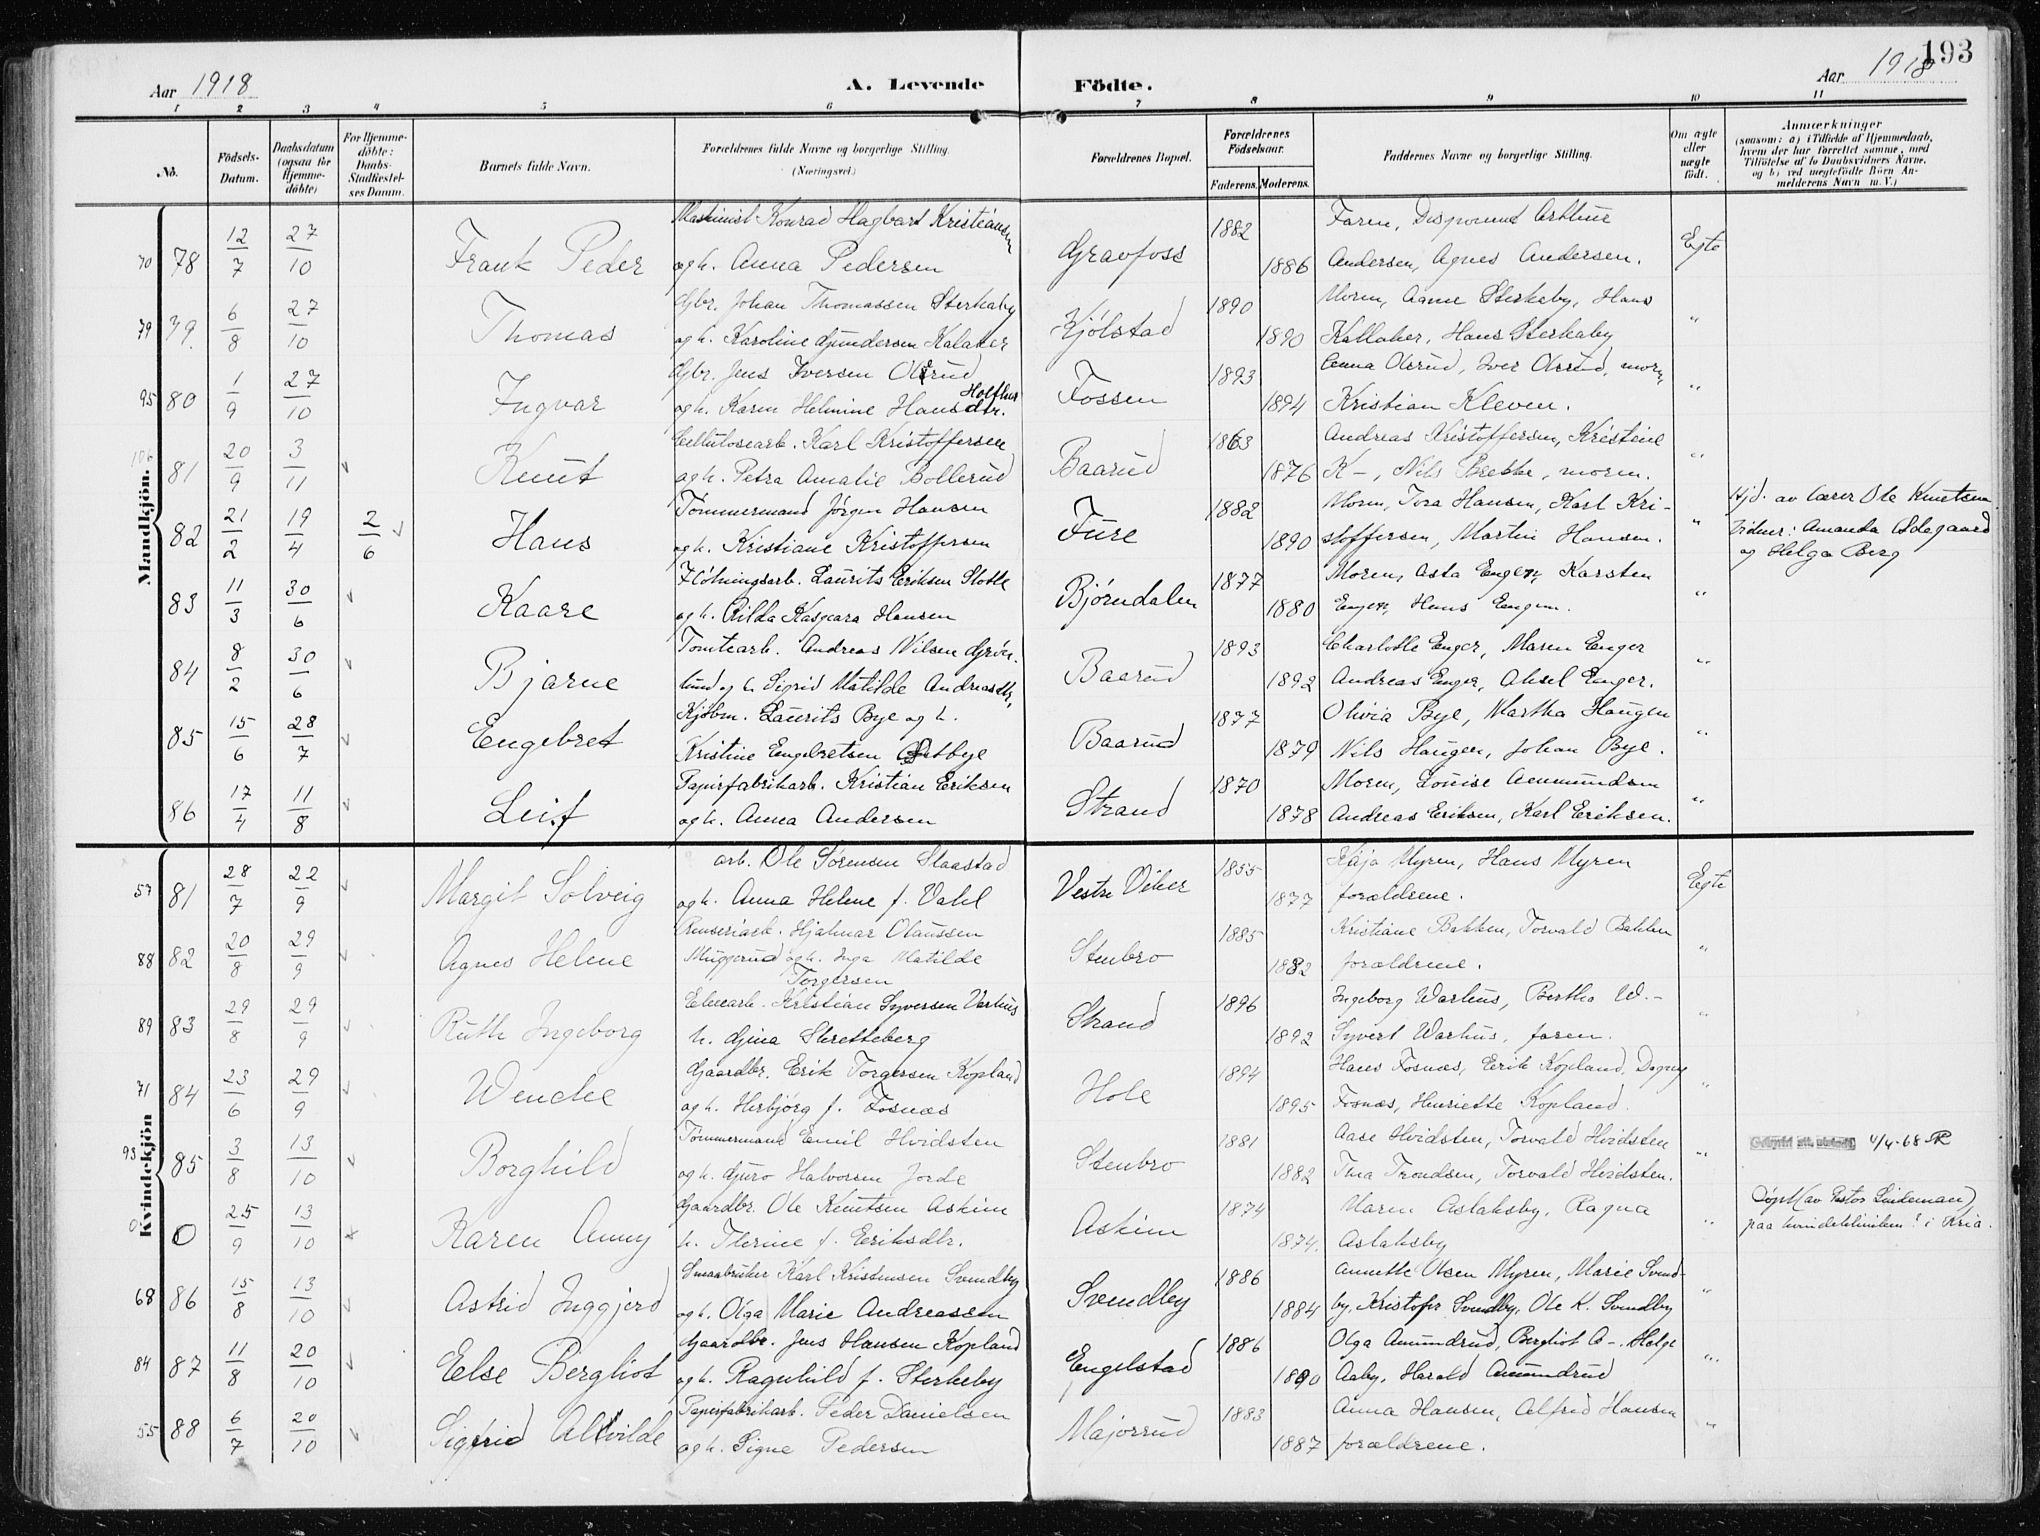 193
Aar 1918
A. Levende
Födte.
Aar 1918
1 2 3 4 5 6 7 8 9 10 11
No.
Födsels-Datum.
Daabsdatum (ogsaa for Hjemme-döbte)
For Hjemme-döbte: Daabs-Stadfæstel-ses Datum.
Barnets fulde Navn.
Forældrenes fulde Navne og borgerlige Stilling.
(Næringsvei.)
Forældrenes Bopæl.
Forældrenes Födselsaar.
Faderens. Moderens.
Faddernes Navne og borgerlige Stilling.
Om ægte eller uægte födt.
Anmærkninger
(saasom: a) i Tilfælde af Hjemmedaab, hvem der har forrettet samme, med Tilföielse af to Daabsvidners Navne, og b) ved uægtefödte Börn An-melderens Navn m. V.)
Mandkjön.
70 78 12/7 27/10 Frank Peder
Maskinist Konrad Hagbart Kristiansen
og h. Anna Pedersen
Gravfoss 1882 1886
Faren, Disponent Arthur
Andersen, Agnes Andersen.
Egte
79 79. 6/8 27/10 Thomas
Gbr. Johan Thomassen Sterkeby
og h. Karoline Gundersen Kalaker
Kjølstad 1890 1890
Moren, Anne Sterkeby, Hans
Kallaker, Hans Sterkeby
"
95 80 1/9 27/10 Ingvar
Gbr. Jens Iversen Olsrud
og h. Karen Helmine Hansdtr.
Fossen 1893 1894
Anna Olsrud, Iver Olsrud, moren,
Kristian Kleven.
"
106 81 20/9 3/11 Knut
Cellulosearb. Karl Kristoffersen
og h. Petra Amalie Bollerud
Baarud 1863 1876
Andreas Kristoffersen, Kristine
K-, Nils Brekke, moren.
"
82 21/2 19/4 2/6 Hans
Tømmermand Jørgen Hansen
og h. Kristiane Kristoffersen
Fure 1882 1890
Moren, Tora Hansen, Karl Kri-
stoffersen, Martin Hansen.
"
Hjd. av Lærer Ole Knutsen
Vidner: Amanda Ødegaard
og Helga Berg
83 11/3 30/6 Kaare
Fløtningsarb. Laurits Eriksen
og h. Hilda Kaspara Hansen
Bjørndalen 1877 1880
Moren, Asta Enger, Karsten
Enger, Hans Engen.
"
84 8/2 30/6 Bjarne
Tomtearb. Andreas Nilsen Grøn-
lund og h. Sigrid Matilde Andreasdtr,
Baarud 1893 1892
Charlotte Enger, Maren Enger
Andreas Enger, Aksel Enger.
"
85 15/6 28/7 Engebret
Kjøbm. Laurits Bye og h.
Kristine Engebretsen Østbye
Baarud 1877 1879
Olivia Bye, Martha Haugen
Nils Haugen, Johan Bye.
"
86 17/4 11/8 Leif
Papirfabrikarb. Kristian Eriksen
og h. Anna Andersen
Strand 1870 1878
Moren, Louise Aemmundsen
Andreas Eriksen, Karl Eriksen.
"
Kvindekjön
57 81 28/7 22/9 Margit Solveig
arb. Ole Sørensen Staastad
og h. Anna Helene f. Dahl
Vestre Viker 1855 1877
Kaja Myren, Hans Myren
forældrene.
Egte
88 82 20/8 29/9 Agnes Helene
Renseriarb. Hjalmar Olaussen
Muggerud og h. Inga Matilde
Torgersen
Stenbro 1885 1882
Kristiane Bakken, Torvald Bakken
forældrene.
"
89 83 29/8 29/9 Ruth Ingeborg
Kristian Syversen Varhus
h. Gina Skretteberg
Strand 1896 1892
Ingeborg Warhus, Bertha W.-
Syvert Warhus, faren.
"
71 84 23/6 29/9 Wenche
Gaardbr. Erik Torgersen Kopland
og h. Herbjørg f. Fosnæs
Hole 1894 1895
Hans Fosnæs, Erik Kopland, Dagny
Fosnæs, Henriette Kopland.
"
93 85 3/8 13/10 Borghild
Tømmermand Emil Hvidsten
og h. Guro Halvorsen Jorde
Stenbro 1881 1882
Aase Hvidsten, Torvald Hvidsten
Tina Trondsen, Torvald Hvidsten.
"
4/4-68
0 0 25/9 13/10 Karen Anny
Gaardbr. Ole Knutsen Askim
h. Therine f. Eriksdtr.
Askim 1874 1874.
Maren Aslaksby, Ragna
Aslaksby
"
Døpt (av Pastor Lindeman)
paa kvindeklinikken? i Kria.
68 86 15/8 13/10 Astrid Inggjerd
Smaabruker Karl Kristensen Svendby
og h. Olga Marie Andreassen
Svendby 1886 1884
Annette Olsen Myren, Marie Svend-
by, Kristofr Svendby, Ole K. Svendby
"
84 87 11/8 20/10 Else Bergliot
Gaardbr. Jens Hansen Kopland
og h. Ragnhild f. Sterkeby
Engelstad 1886 1890
Olga Amundrud, Bergliot A-. Helge
Aaby, Harald Amundrud
"
55 88 6/7 20/10 Sigfrid Alvilde
Papirfabrikarb. Peder Danielsen
og h. Signe Pedersen
Majorrud 1883 1887
Anna Hansen, Alfred Hansen
forældrene.
"